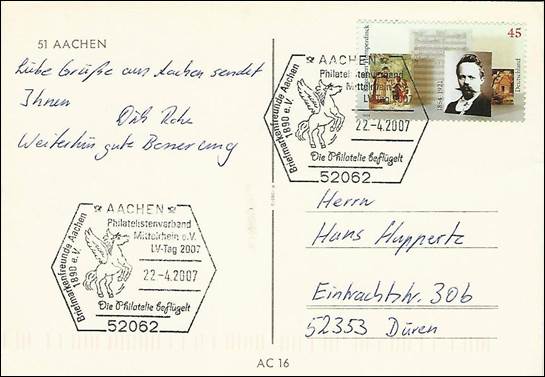 51 AACHEN
Liebe Grüße aus Aachen sendet
Ihnen
Dirk
Weiterhin gute Besserung
AACHEN
Philatelistenverband
Mittelrhein e.V.
LV-Tag 2007
Briefmarkenfreunde Aachen
1890 e.V.
22.-4.2007
Die Philatelie beflügelt
52062
45
Deutschland
1854-1921
AACHEN
Philatelistenverband
Mittelrhein e.V.
LV-Tag 2007
Briefmarkenfreunde Aachen
1890 e.V.
22.-4.2007
Die Philatelie beflügelt
52062
Herrn
Hans Huppertz
Eintrachtstr. 30b
52353 Düren
AC 16